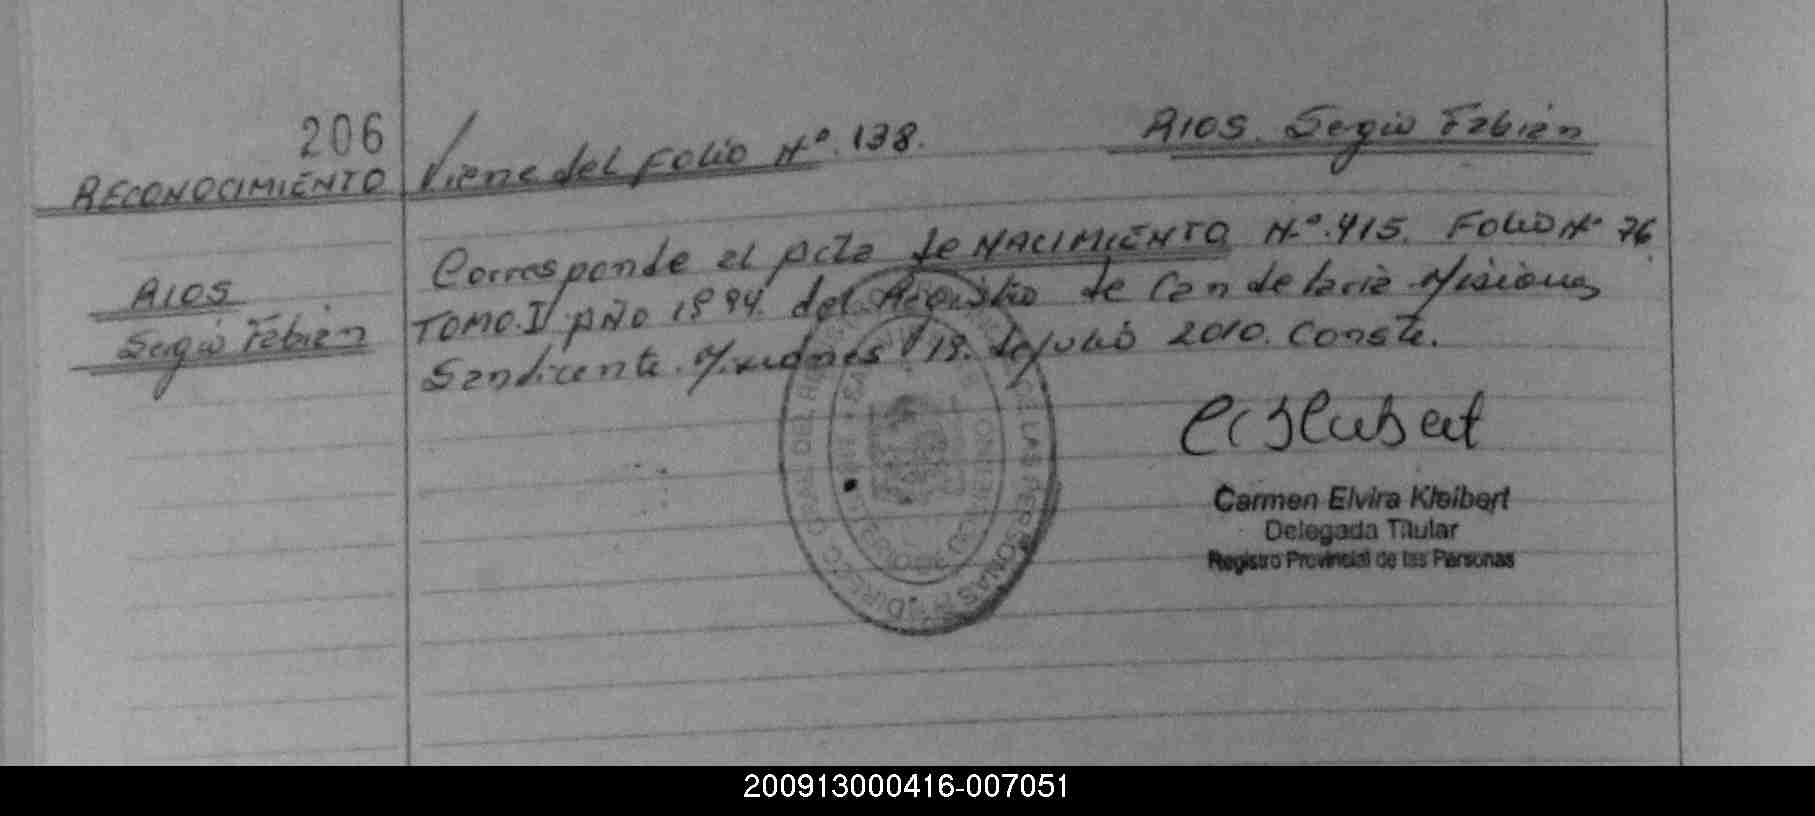 206
RECONOCIMIENTO
RIOS
Sergio Fabián
Viene del Folio Nº. 138.
RIOS. Sergio Fabián
Corresponde al Acta de NACIMIENTO Nº. 415. Folio Nº 76
TOMO. I AÑO 1994. del Registro de Candelaria Misiones
Sandicente. Misiones 19. de Julio 2010. Conste.
Carmen Elvira Kleibert
Delegada Titular
Registro Provincial de las Personas
200913000416-007051